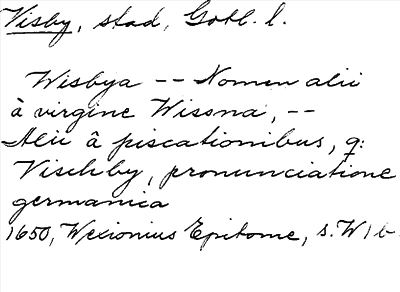 Visby, stad, Gotl. l.
Wisbya -- Nomen alii
à virgine Wissna, --
Alii â piscationibus, q:
Vischby, pronunciatione
germanica
1650, Wexionius Epitome, s. W 1 b